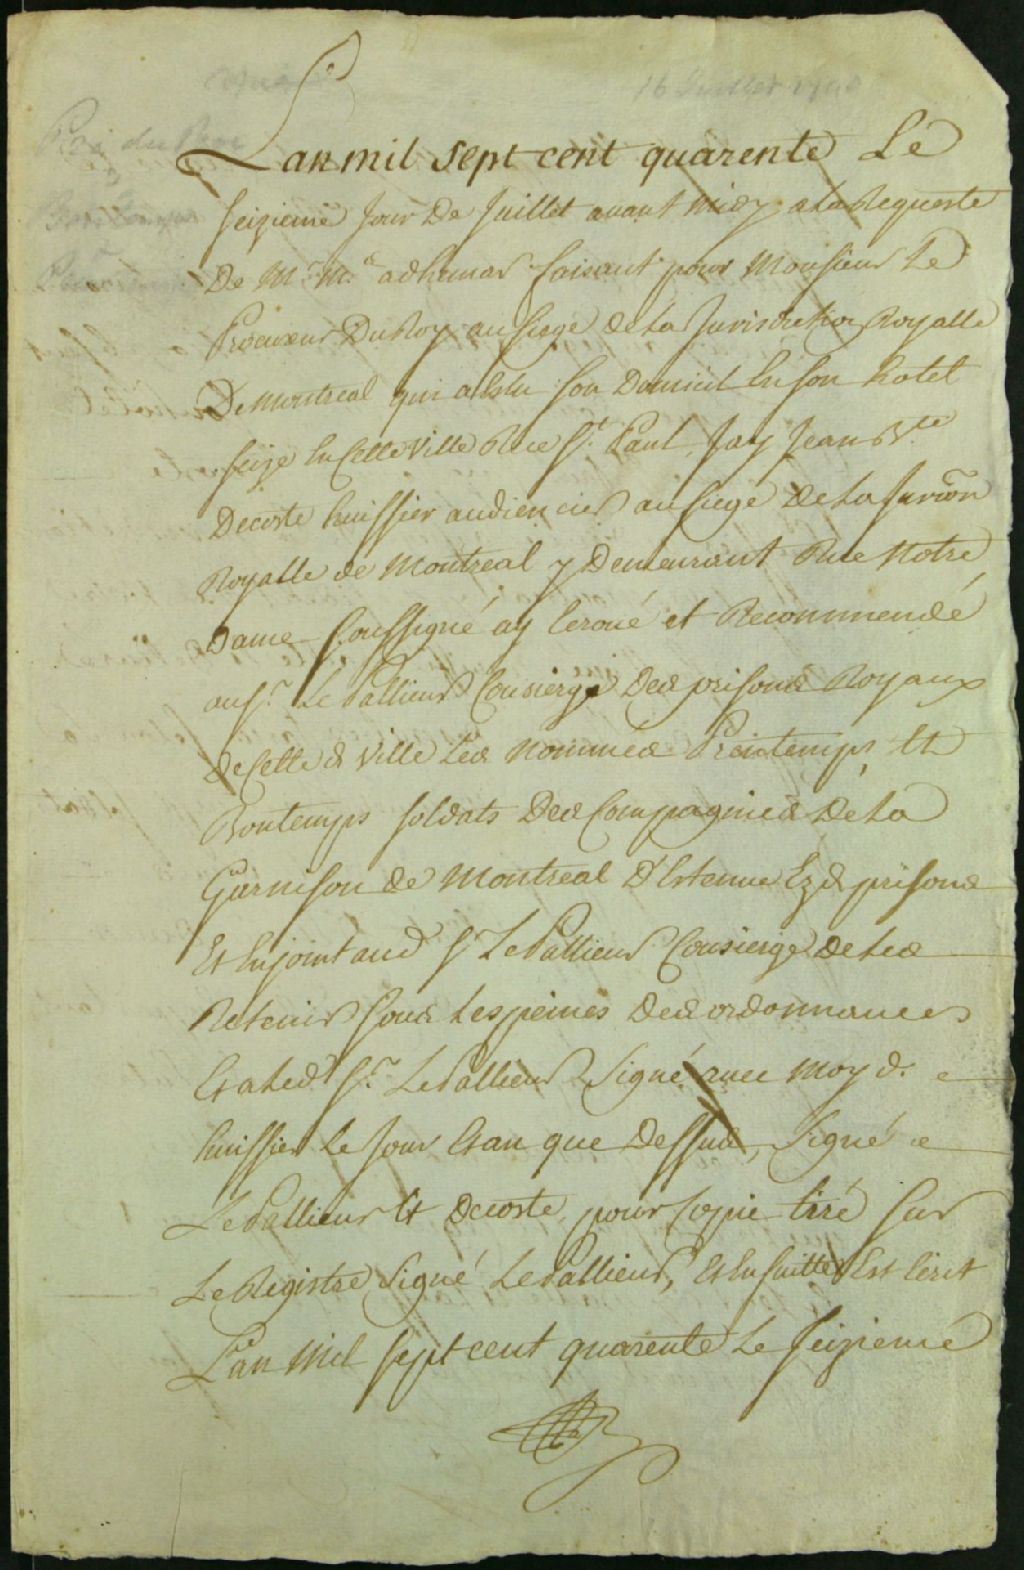 16 Juillet 1740
Lan mil sept cent quarente Le
seizieme jour De Juillet avant midy a la Requeste
De Mr. Me adhemar faisant pour Monsieur Le
Procureur Du Roy au siege de La Jurisdiction Royalle
De montreal qui a Eslu son Domicil En son hotel
size En Cette Ville Rue St. Paul, Jay Jean Bte
Decoste huissier audiencier au siege de La Juri͠on
Royalle de Montreal y Demeurant Rue Notre
Dame soussigné ay Ecroué et Recommendé
au sr. Le Pallieur Consierge Des prisons Royaux
de Cette d Ville Les nommés Printemps Et
Bontemps soldats Des Compagnies De La
Garnison de Montreal D'Estenue Ez d prisons
Et Enjoint aud sr Le Pallieur Consierge de Les
Retenir sous Les peines Des ordonnances
Et a Led sr. Le Pallieur Signé avec moy d.
huissier Le jour Et an que Dessus, Signé
Le Pallieur Et Decoste pour Copie tiré sur
Le Registre Signé Le Pallieur, Et En suitte Est Ecrit
L'an Mil sept cent quarente Le seizieme